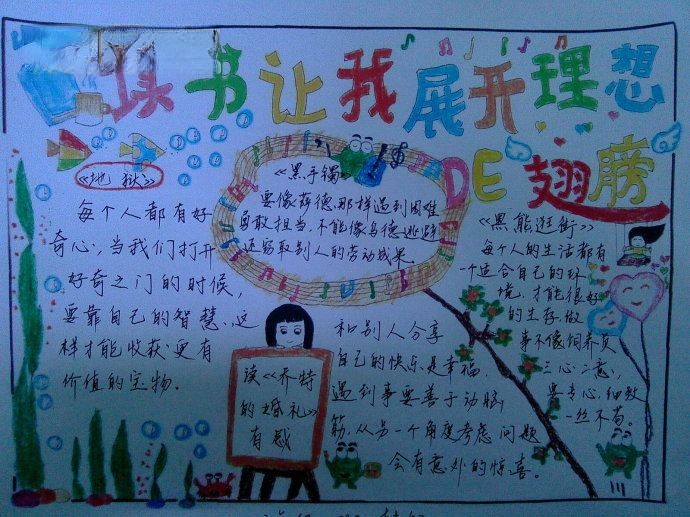 读书让我展开理想
DE翅膀
《地狱》
每个人都有好
奇心，当我们打开
好奇之门的时候，
要靠自己的智慧，这
样才能收获更有
价值的宝物。
《黑手镯》
要像萨德那样遇到困难
勇敢担当，不能像乌德逃避
还窃取别人的劳动成果
《黑熊逛街》
每个人的生活都有
一个适合自己的环
境，才能很好
的生存，做
事不像饲养员
三心二意，
要专心，细致
一丝不苟。
读《乔特
的婚礼》
有感
和别人分享
自己的快乐是幸福，
遇到事要善于动脑
筋，从另一个角度考虑问题
会有意外的惊喜。